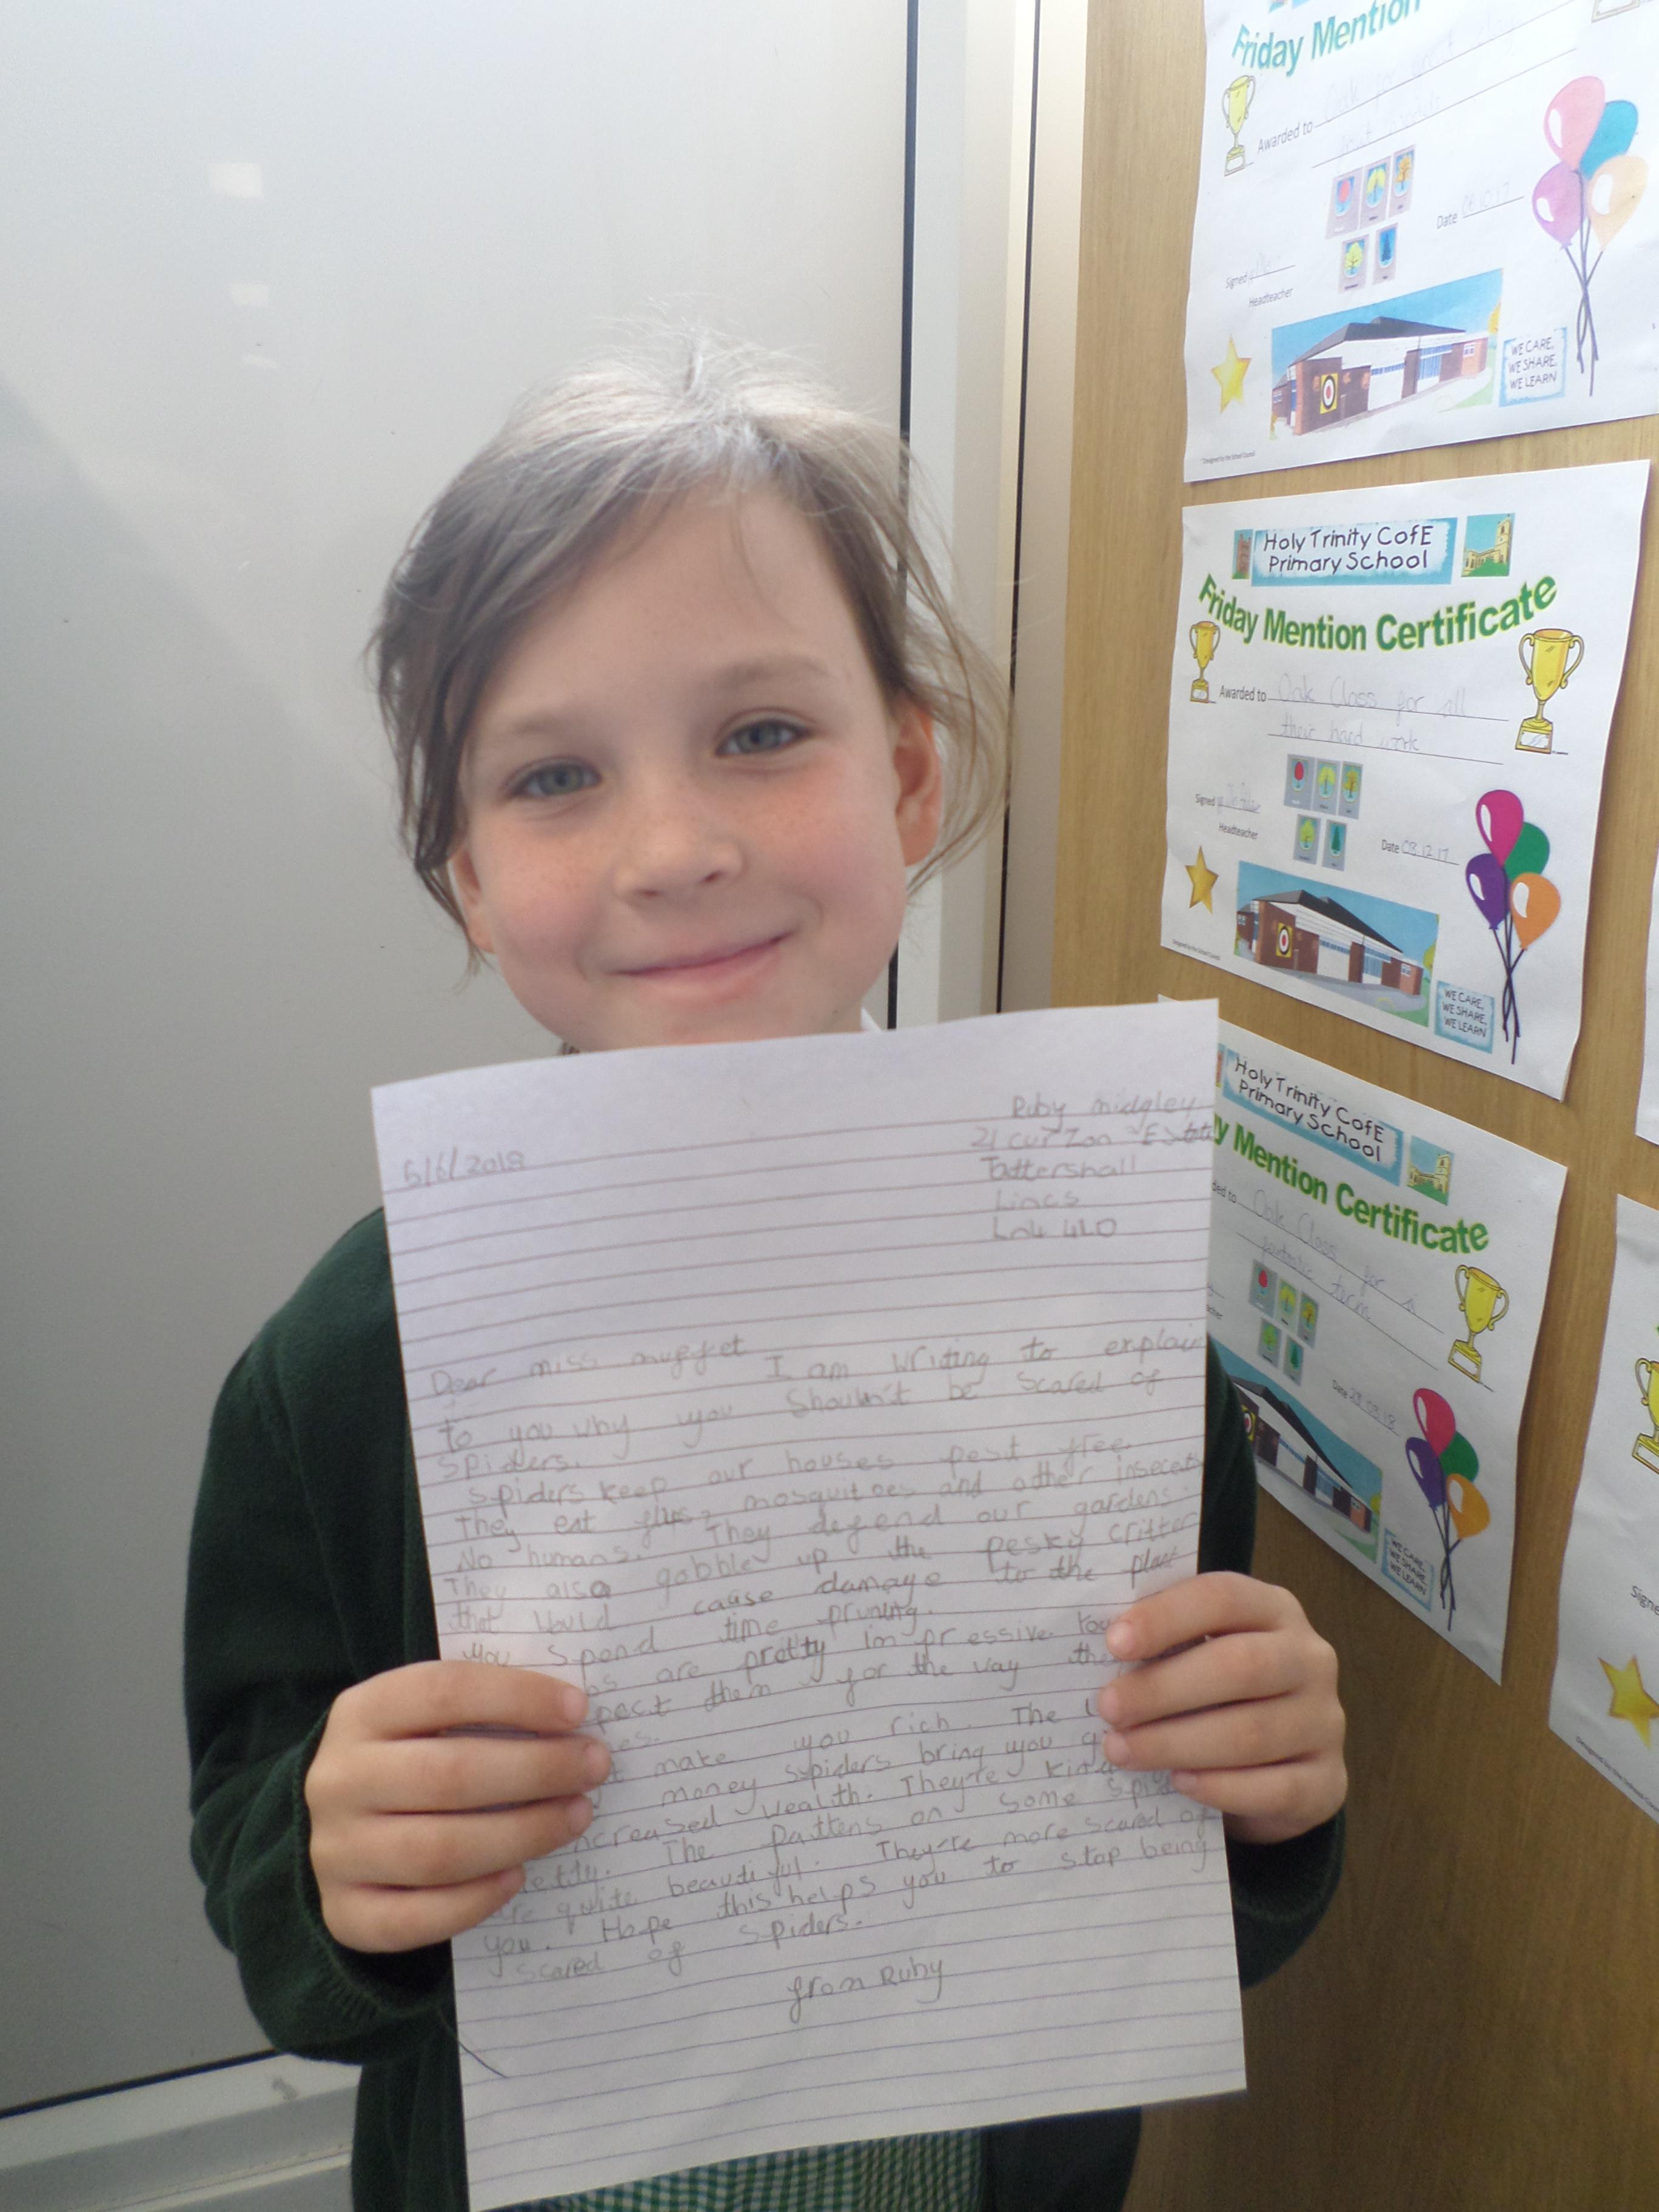 Friday Mention
Awarded to
Date
Signed
Headteacher
WE CARE,
WE SHARE,
WE LEARN
Designed by the School Council
Holy Trinity CofE
Primary School
Friday Mention Certificate
Awarded to Oak Class for all
their hard work
Signed
Headteacher
Date 08.12.17
WE CARE,
WE SHARE,
WE LEARN
Designed by the School Council
Holy Trinity CofE
Primary School
y Mention Certificate
ded to Oak Class for a
fantastic term
Date
WE CARE,
WE SHARE,
WE LEARN
Signe
Ruby midgley
21 curzon Estate
5/6/2018
Tattershall
Lincs
LN4 4LD
Dear miss muffet
I am writing to explain
to you why you shouln't be scared of
spiders.
spiders keep our houses pest free.
They eat mosquitoes and other insecets
No humans. They defend our gardens.
They also gobble up the pesky critter
that would cause damage to the plat
you spend time pruning.
bs are pretty impressive. You
pect them for the way the
es.
t make you rich. The l
money spiders bring you
ncreased wealth. They're kind
etty. The pattens on some spi
re quite beautiful. They're more scared of
you. Hope this helps you to stop being
scared of spiders.
from Ruby